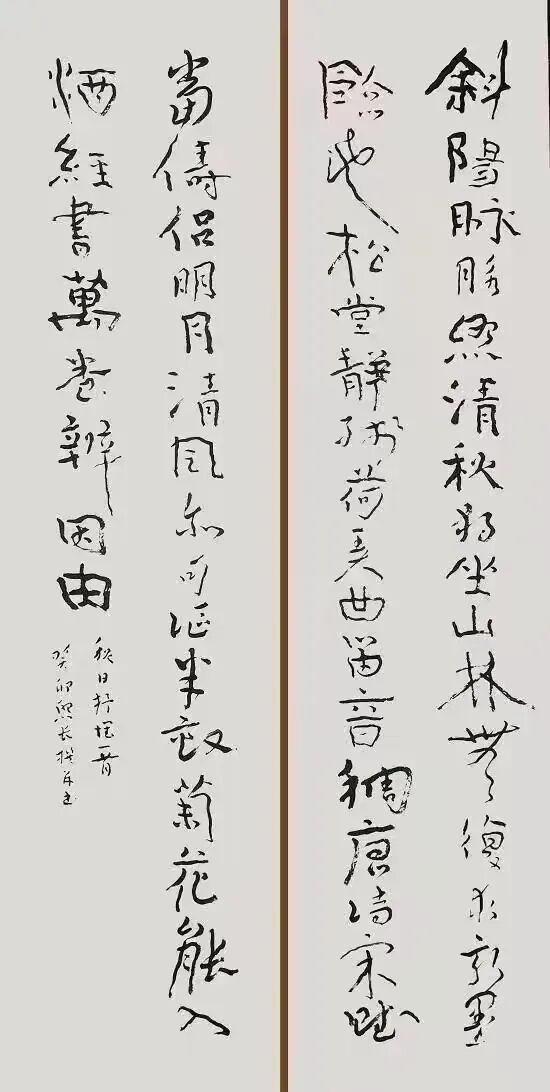 斜陽脉脉照清秋獨坐山林無復求新墨
臨池松堂靜殘荷奏曲留音稠唐詩宋賦
當儔侶明月清風亦可謳半畝菊花能入
酒經書萬卷辨因由
秋日抒懷一首
癸卯熙長撰并書